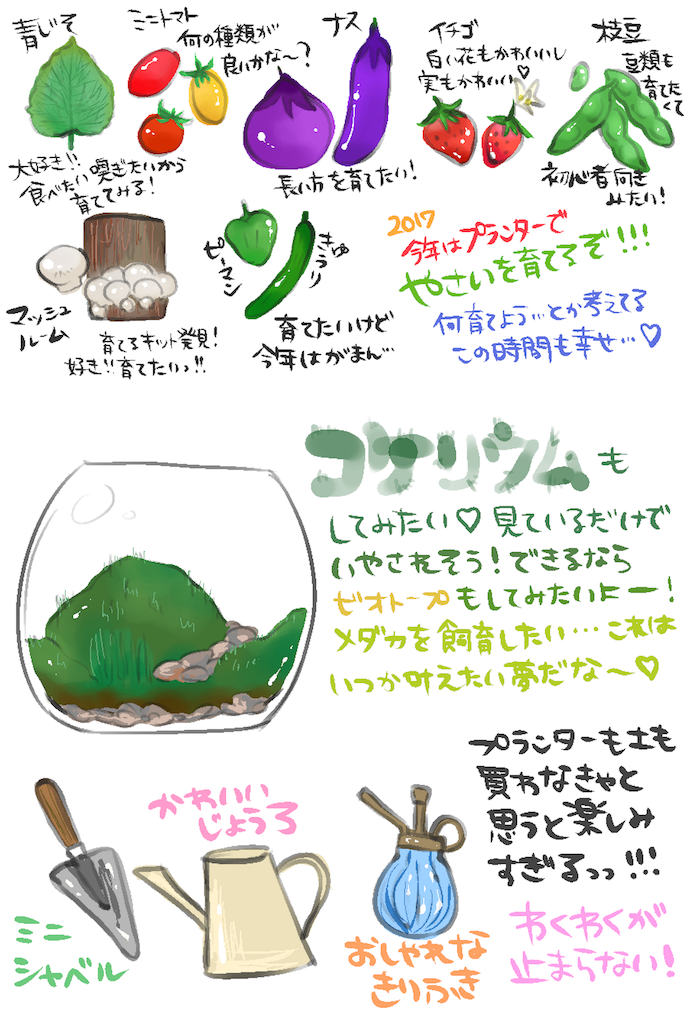 青じそ
大好き!!
食べたい嗅ぎたいから
育ててみる!
ミニトマト
何の種類が
良いかな〜?
ナス
長い方を育てたい!
イチゴ
白い花もかわいいし
実もかわいい♡
枝豆
豆類も
育てたくて
初心者向き
みたい!
マッシュ
ルーム
育てるキット発見!
好き!!育てたいっ!!
ピーマン
きゅうり
育てたいけど
今年はがまん…
2017
今年はプランターで
やさいを育てるぞ!!!
何育てよう…とか考えてる
この時間も幸せ…♡
コケリウムも
してみたい♡見ているだけで
いやされそう!できるなら
ビオトープもしてみたいよー!
メダカを飼育したい…これは
いつか叶えたい夢だな〜♡
プランターも土も
買わなきゃと
思うと楽しみ
すぎるっっ!!!
ミニ
シャベル
かわいい
じょうろ
おしゃれな
きりふき
わくわくが
止まらない!